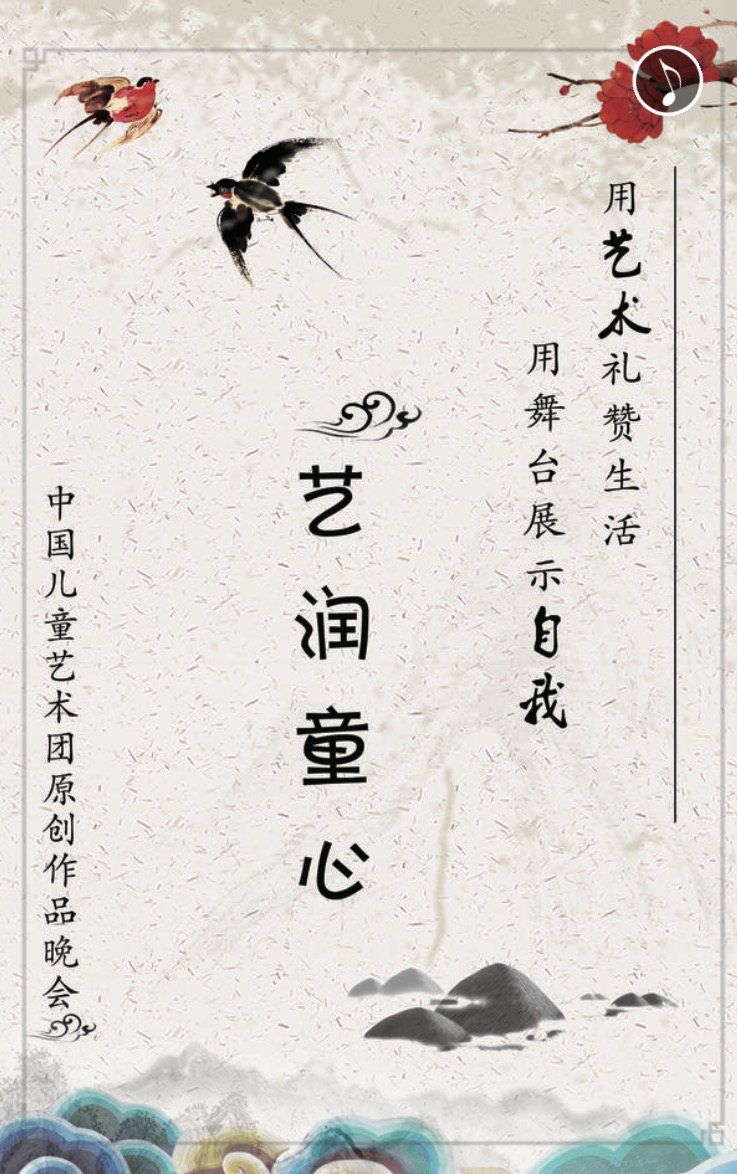 用艺术礼赞生活
用舞台展示自我
艺润童心
中国儿童艺术团原创作品晚会